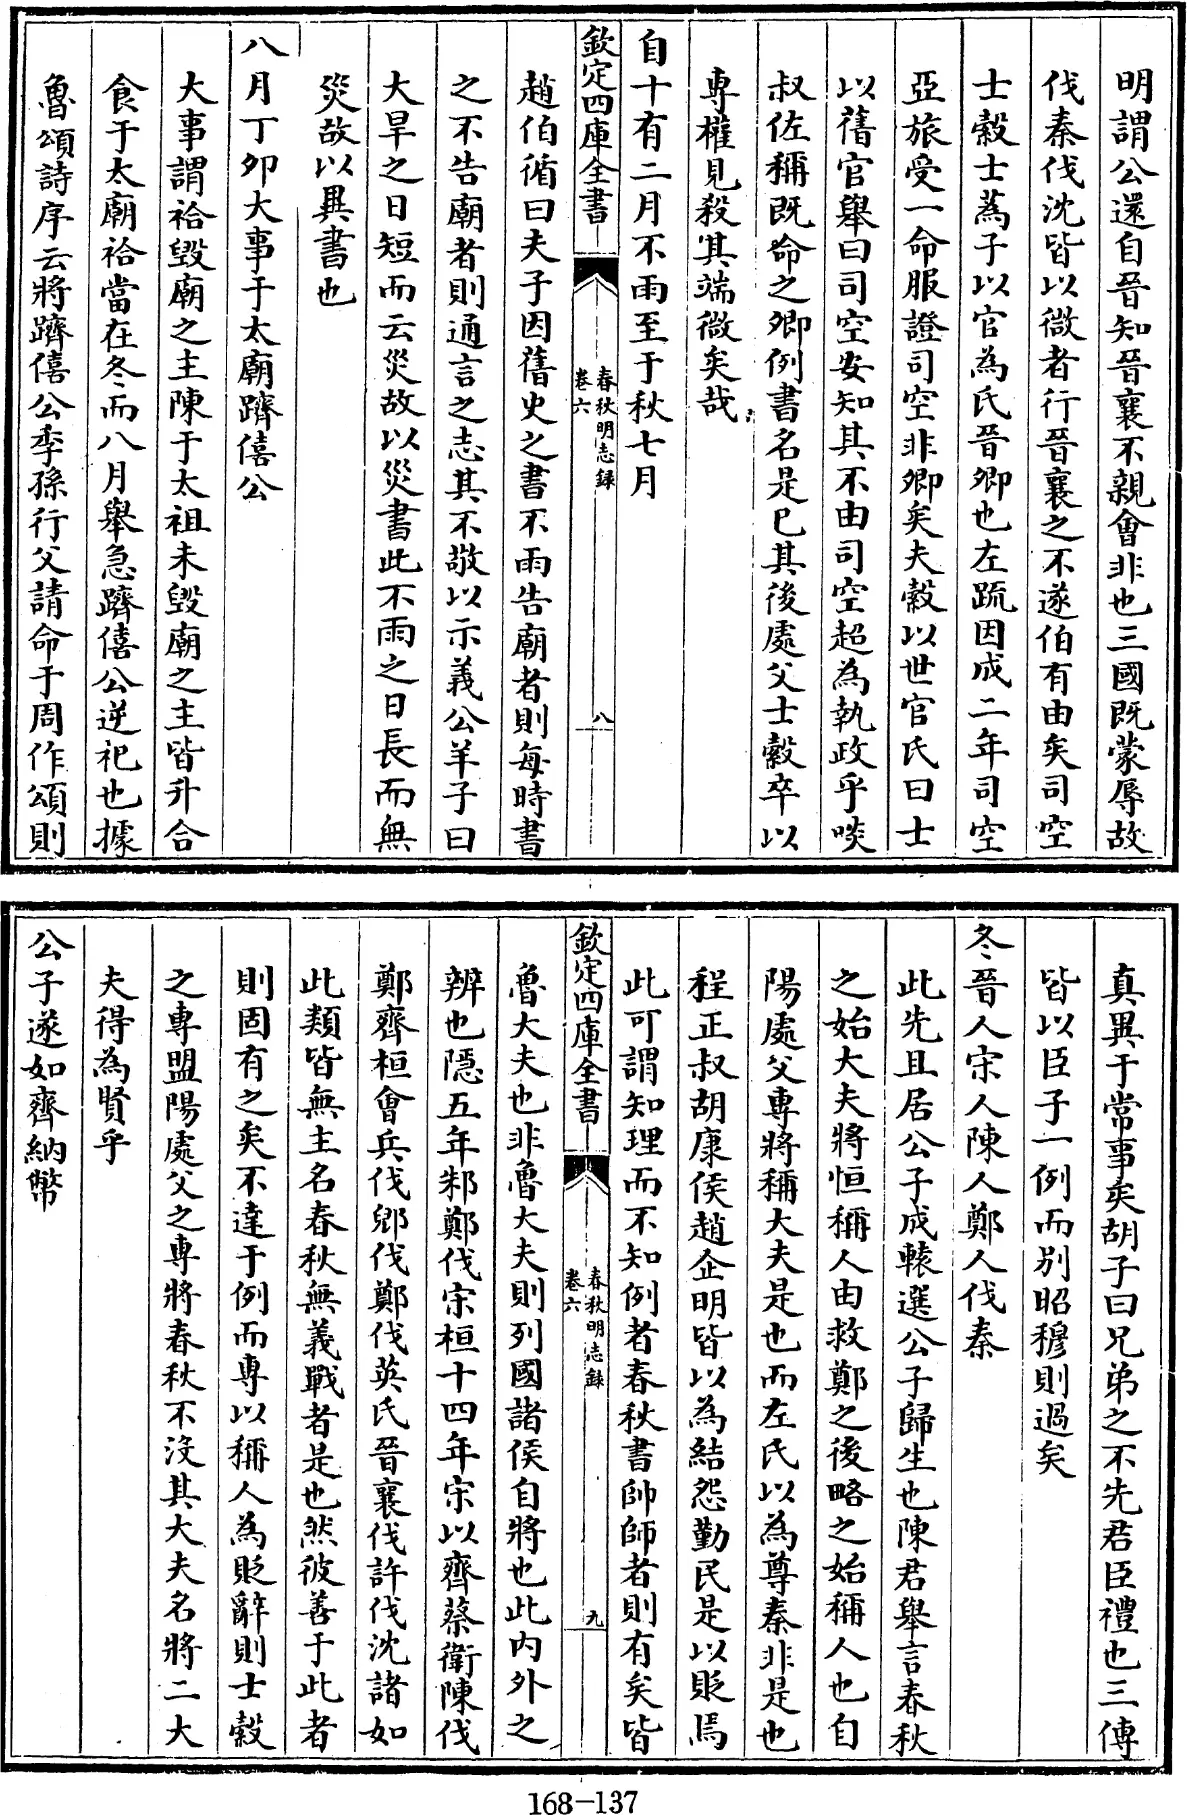 明謂公還自晉知晉襄不親會非也三國旣蒙辱故
伐秦伐沈皆以微者行晉襄之不遂伯有由矣司空
士縠士蔿子以官為氏晉卿也左疏因成二年司空
亞旅受一命服證司空非卿矣夫縠以世官氏曰士
以舊官舉曰司空安知其不由司空超為執政乎啖
叔佐稱旣命之卿例書名是已其後處父士縠卒以
專權見殺其端微矣哉
自十有二月不雨至于秋七月
欽定四庫全書
春秋明志録
卷六
八
趙伯循曰夫子因舊史之書不雨告廟者則每時書
之不告廟者則通言之志其不敬以示義公羊子曰
大旱之日短而云災故以災書此不雨之日長而無
災故以異書也
八月丁卯大事于太廟躋僖公
大事謂祫毀廟之主陳于太祖未毀廟之主皆升合
食于太廟祫當在冬而八月舉急躋僖公逆祀也據
魯頌詩序云將躋僖公季孫行父請命于周作頌則
真異于常事矣胡子曰兄弟之不先君臣禮也三傳
皆以臣子一例而別昭穆則過矣
冬晉人宋人陳人鄭人伐秦
此先且居公子成轅選公子歸生也陳君舉言春秋
之始大夫將恒稱人由救鄭之後略之始稱人也自
陽處父專將稱大夫是也而左氏以為尊秦非是也
程正叔胡康侯趙企明皆以為結怨勤民是以貶焉
此可謂知理而不知例者春秋書帥師者則有矣皆
欽定四庫全書
春秋明志録
卷六
九
魯大夫也非魯大夫則列國諸侯自將也此内外之
辨也隱五年邾鄭伐宋桓十四年宋以齊蔡衛陳伐
鄭齊桓會兵伐郳伐鄭伐英氏晉襄伐許伐沈諸如
此類皆無主名春秋無義戰者是也然彼善于此者
則固有之矣不達于例而專以稱人為貶辭則士縠
之專盟陽處父之專將春秋不沒其大夫名將二大
夫得為賢乎
公子遂如齊納幣
168-137